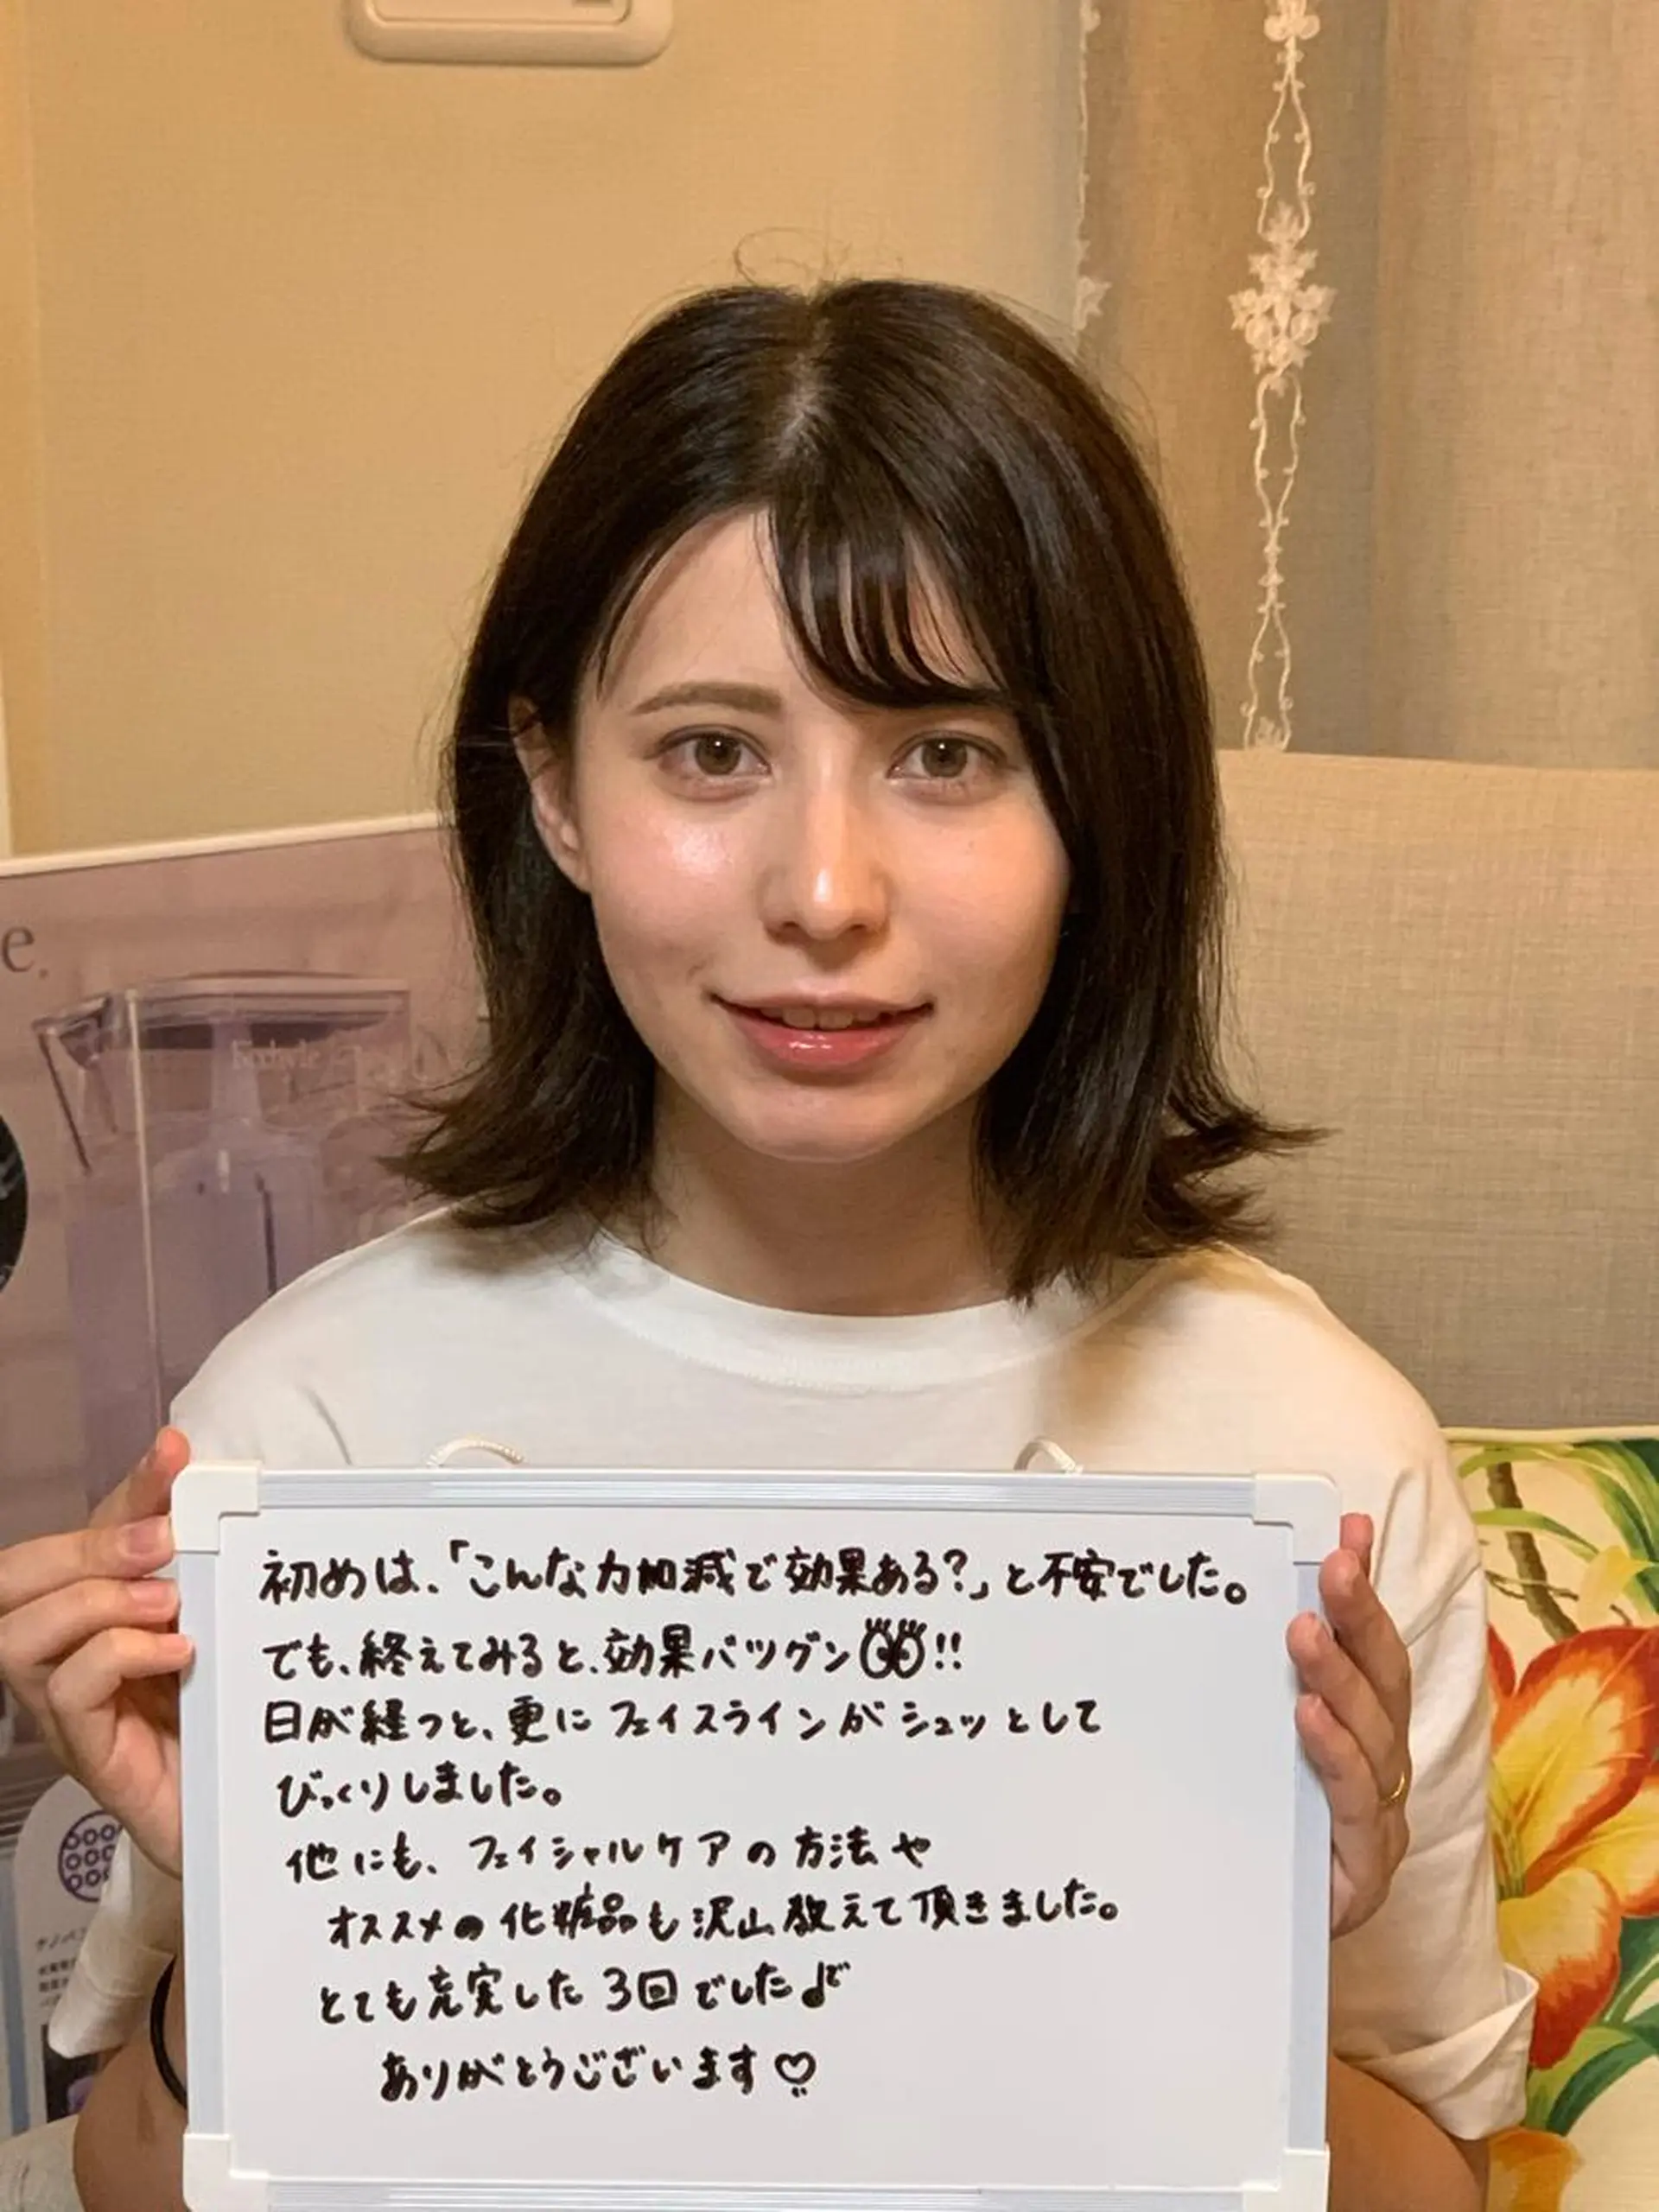 初めは、「こんな力加減で効果ある?」と不安でした。
でも、終えてみると、効果バツグン!!
日が経つと、更にフェイスラインがシュッとして
びっくりしました。
他にも、フェイシャルケアの方法や
オススメの化粧品も沢山教えて頂きました。
とても充実した3回でした♪
ありがとうございます♡
e.